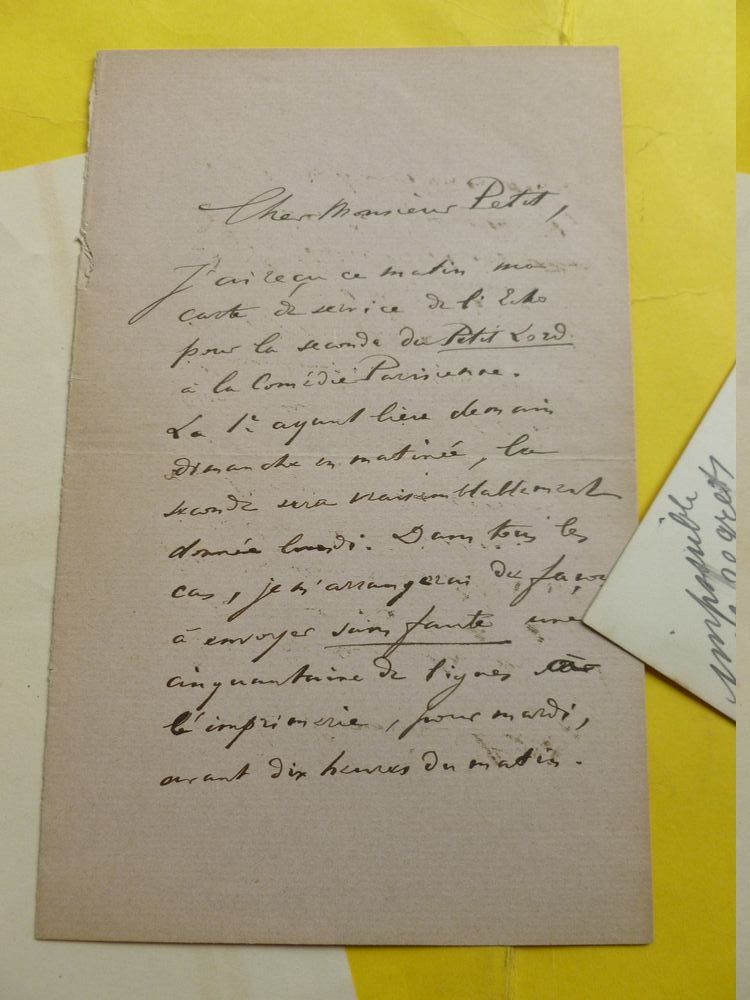 Cher Monsieur Petit,
J'ai reçu ce matin ma
carte de service de l'Echo
pour la seconde du Petit Lord
à la Comédie Parisienne.
La 1e ayant lieu demain
dimanche en matinée, la
seconde sera vraisemblablement
donnée lundi. Dans tous les
cas, je m'arrangerai de façon
à envoyer sans faute une
cinquantaine de lignes à
l'imprimerie, pour mardi,
avant dix heures du matin.
impossible
regrets